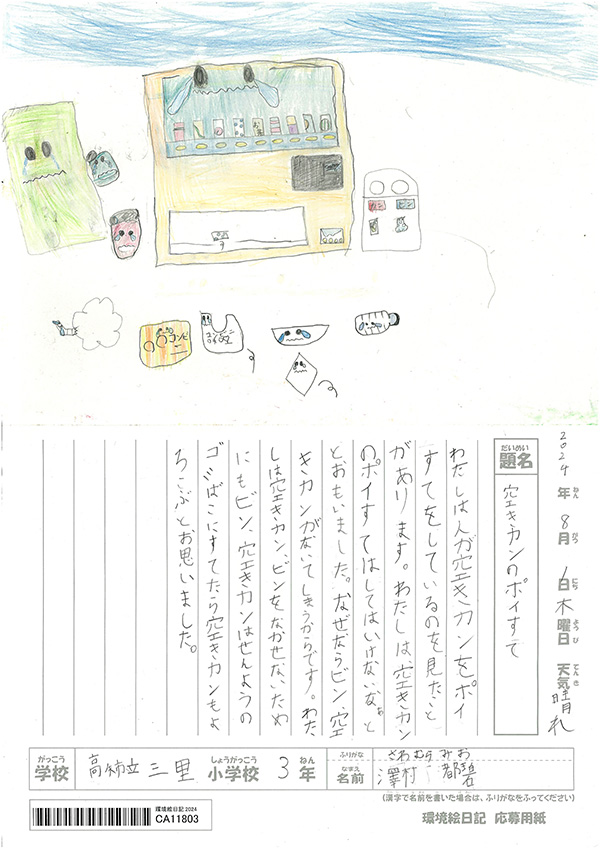 カン
ビン
コンビニ
2024年8月1日木曜日 天気晴れ
ねん
がつ
にち
ようび
てんき
だいめい
題名
空きカンのポイすて
わたしは人が空きカンをポイ
すてをしているのを見たこと
があります。わたしは、空きカン
のポイすてはしてはいけないなぁと
とおもいました。なぜならビン、空
きカンがないてしまうからです。わた
しは空きカン、ビンをなかせないため
にもビン、空きカンはせんようの
ゴミばこにすてたら空きカンもよ
ろこぶとお思いました。
がっこう
学校
高知市立 三里
しょうがっこう
小学校
3
ねん
年
ふりがな
さわむら みお
なまえ
名前
澤村 都碧
(漢字で名前を書いた場合は、ふりがなをふってください)
環境絵日記2024
CA11803
環境絵日記 応募用紙